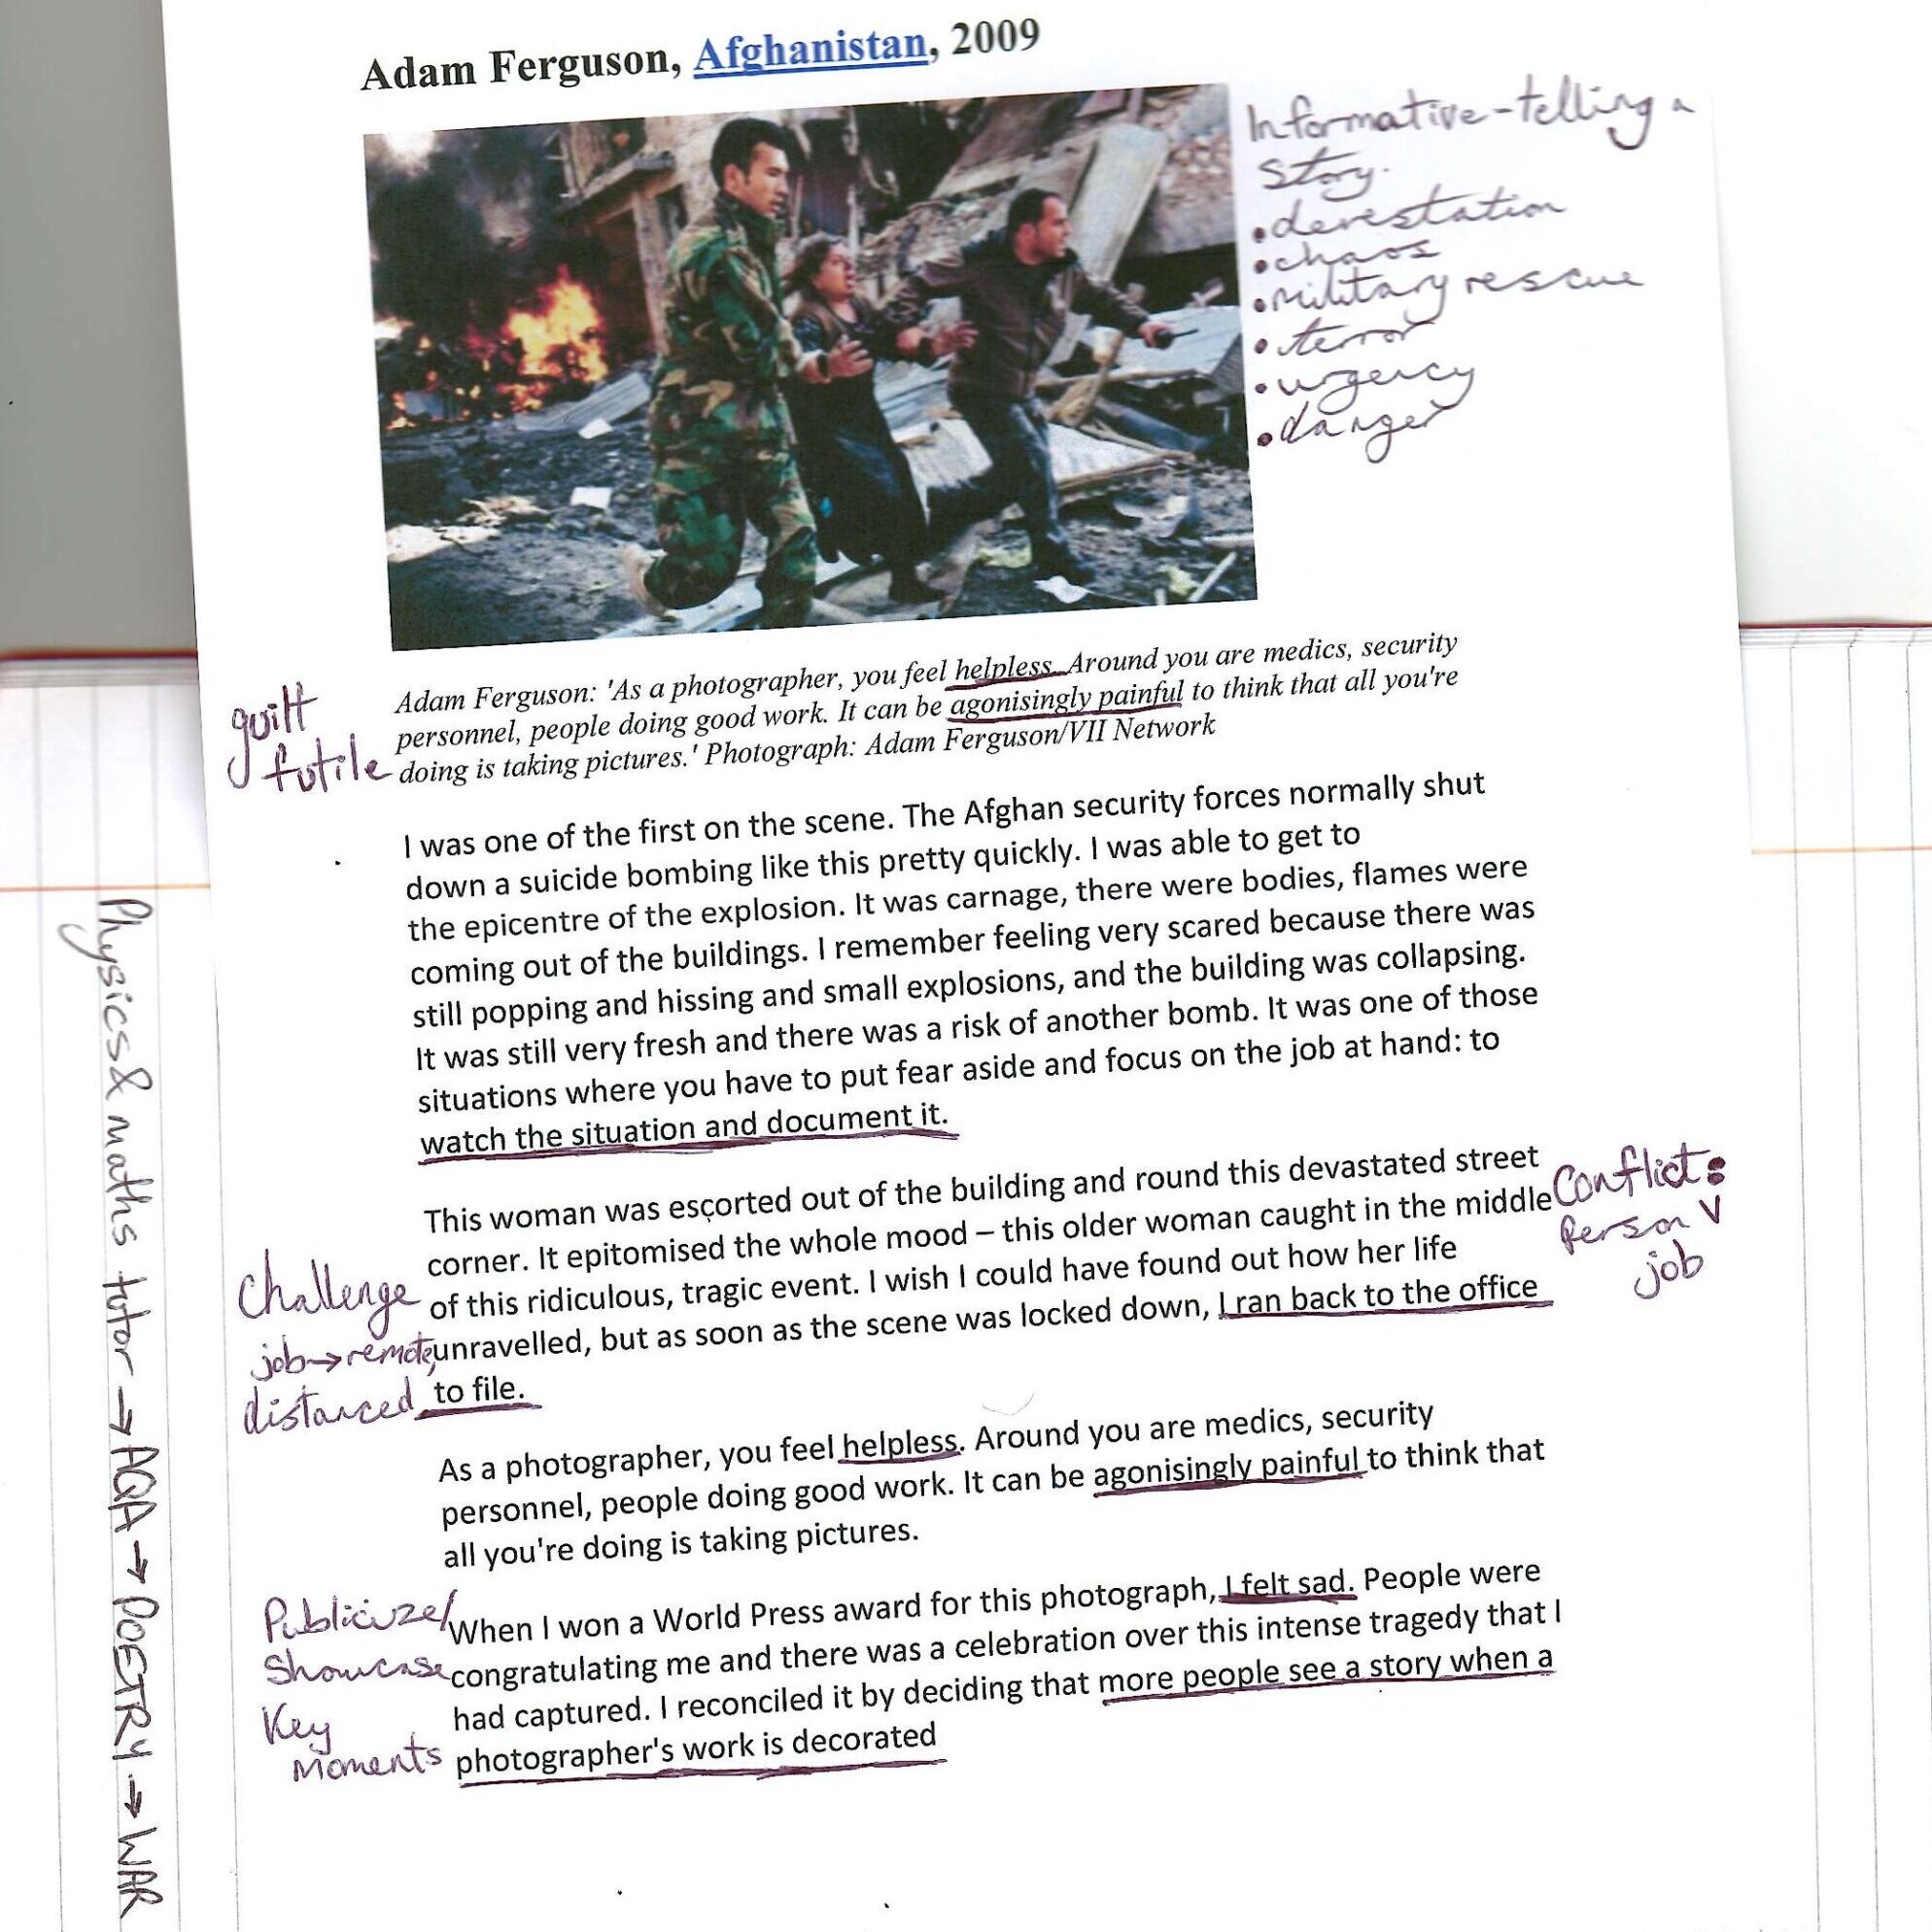 Adam Ferguson, Afghanistan, 2009
Informative-telling a
story.
•derestation
•chaos
•military rescue
•terror
•urgency
•danger
guilt
futile
Adam Ferguson: 'As a photographer, you feel helpless. Around you are medics, security
personnel, people doing good work. It can be agonisingly painful to think that all you're
doing is taking pictures.' Photograph: Adam Ferguson/VII Network
I was one of the first on the scene. The Afghan security forces normally shut
down a suicide bombing like this pretty quickly. I was able to get to
the epicentre of the explosion. It was carnage, there were bodies, flames were
coming out of the buildings. I remember feeling very scared because there was
still popping and hissing and small explosions, and the building was collapsing.
It was still very fresh and there was a risk of another bomb. It was one of those
situations where you have to put fear aside and focus on the job at hand: to
watch the situation and document it.
This woman was escorted out of the building and round this devastated street
corner. It epitomised the whole mood – this older woman caught in the middle
of this ridiculous, tragic event. I wish I could have found out how her life
unravelled, but as soon as the scene was locked down, I ran back to the office
to file.
Conflict:
Person V
job
Challenge
job→remote,
distanced
As a photographer, you feel helpless. Around you are medics, security
personnel, people doing good work. It can be agonisingly painful to think that
all you're doing is taking pictures.
When I won a World Press award for this photograph, I felt sad. People were
congratulating me and there was a celebration over this intense tragedy that I
had captured. I reconciled it by deciding that more people see a story when a
photographer's work is decorated
Publicize/
Showcase
Key
Moments
Physics & maths tutor → AQA → POETRY → WAR